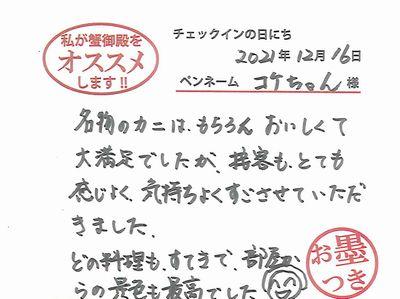 私が蟹御殿を
オススメ
します!!
チェックインの日にち
2021年12月16日
ペンネーム コケちゃん 様
名物のカニは、もちろん おいしくて
大満足でしたが、接客も、とても
感じよく、気持ちよくすごさせていただ
きました、
どの料理も、すてきで、部屋か
らの景色も最高でした
お墨
つき